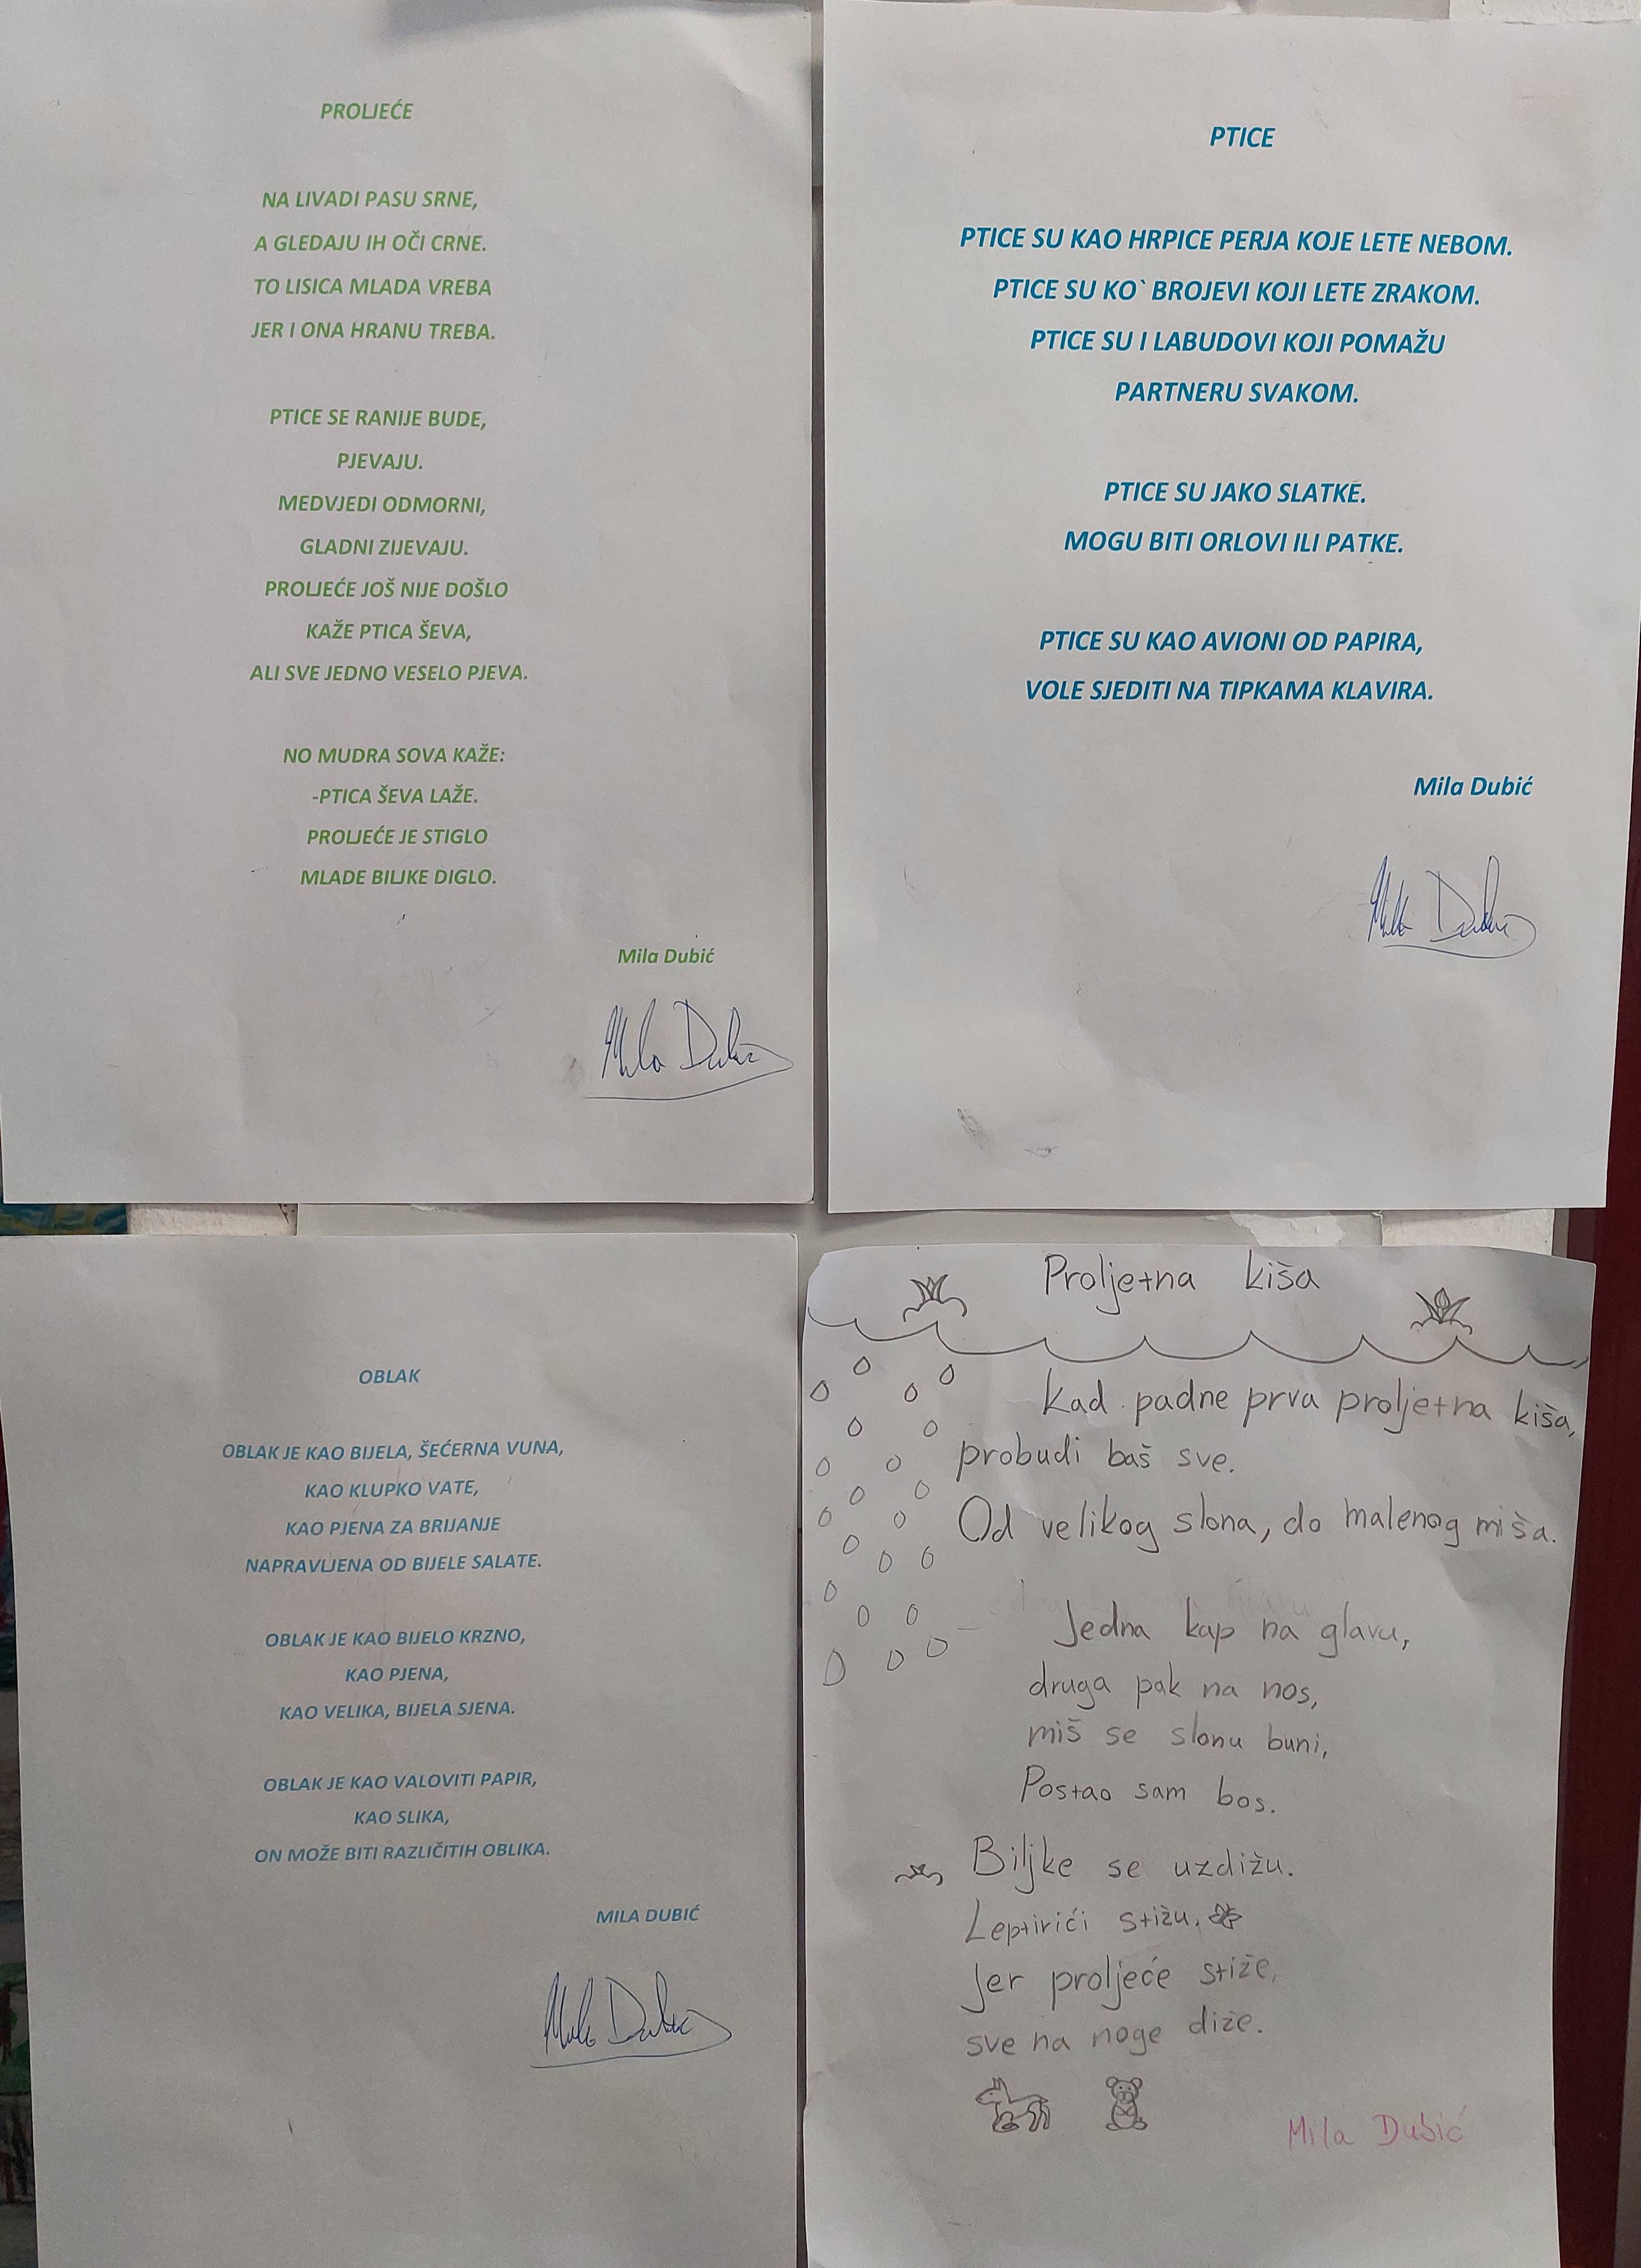 PROLJEĆE
NA LIVADI PASU SRNE,
A GLEDAJU IH OČI CRNE.
TO LISICA MLADA VREBA
JER I ONA HRANU TREBA.
PTICE SE RANIJE BUDE,
PJEVAJU.
MEDVJEDI ODMORNI,
GLADNI ZIJEVAJU.
PROLJEĆE JOŠ NIJE DOŠLO
KAŽE PTICA ŠEVA,
ALI SVE JEDNO VESELO PJEVA.
NO MUDRA SOVA KAŽE:
-PTICA ŠEVA LAŽE.
PROLJEĆE JE STIGLO
MLADE BILJKE DIGLO.
Mila Dubić
Mila Dubić
PTICE
PTICE SU KAO HRPICE PERJA KOJE LETE NEBOM.
PTICE SU KO` BROJEVI KOJI LETE ZRAKOM.
PTICE SU I LABUDOVI KOJI POMAŽU
PARTNERU SVAKOM.
PTICE SU JAKO SLATKE.
MOGU BITI ORLOVI ILI PATKE.
PTICE SU KAO AVIONI OD PAPIRA,
VOLE SJEDITI NA TIPKAMA KLAVIRA.
Mila Dubić
Mila Dubić
OBLAK
OBLAK JE KAO BIJELA, ŠEĆERNA VUNA,
KAO KLUPKO VATE,
KAO PJENA ZA BRIJANJE
NAPRAVLJENA OD BIJELE SALATE.
OBLAK JE KAO BIJELO KRZNO,
KAO PJENA,
KAO VELIKA, BIJELA SJENA.
OBLAK JE KAO VALOVITI PAPIR,
KAO SLIKA,
ON MOŽE BITI RAZLIČITIH OBLIKA.
MILA DUBIĆ
Mila Dubić
Proljetna kiša
Kad padne prva proljetna kiša,
probudi baš sve.
Od velikog slona, do malenog miša.
Jedna kap na glavu,
druga pak na nos,
miš se slonu buni,
Postao sam bos.
Biljke se uzdižu.
Leptirići stižu,
Jer proljeće stiže,
sve na noge diže.
Mila Dubić